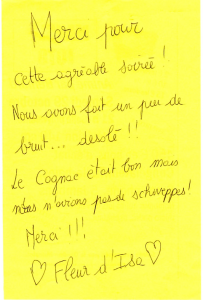 Merci pour
cette agréable soirée !
Nous avons fait un peu de
bruit... desolé !!
Le Cognac était bon mais
nous n'avions pas de schweppes !
Merci !!!
♡ Fleur d'Isa ♡